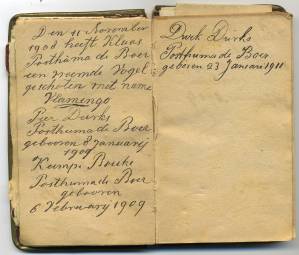 Den 11 November
1908 heeft Klaas
Posthuma de Boer
een vreemde Vogel
geschoten met name
Vlamingo
Pier Durks
Posthuma de Boer
geboren 8 January
1909
Kempe Bouke
Posthuma de Boer
geboren
6 February 1909
Durk Durks
Posthuma de Boer
geboren 23 Januari 1911